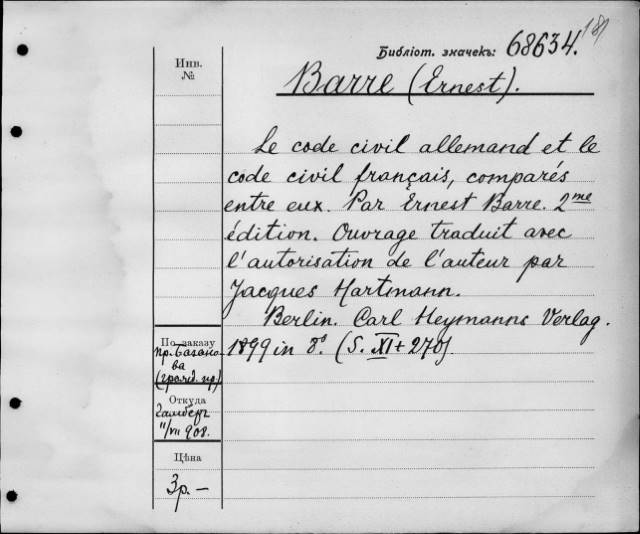 181
Библіот. значекъ: 68634.
Инв.
№
Barre (Ernest).
Le code civil allemand et le
code civil français, comparés
entre eux. Par Ernest Barre. 2me
édition. Ouvrage traduit avec
l'autorisation de l'auteur par
Jacques Hartmann.
Berlin. Carl Heymanns Verlag.
1899 in 8º. (S. XI + 270).
По заказу
пр. Базано-
ва
(гражд. пр.)
Откуда
11/VII 908.
Цѣна
3р. —